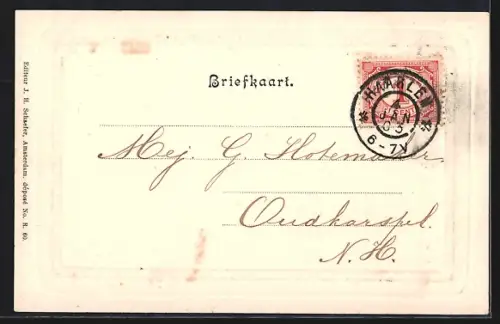 Briefkaart.
HAARLEM
4
JAN
03
6-7V
Mej. G. Slotemaker
Oudkarspel.
N.H.
Editeur J. H. Schaefer, Amsterdam. déposé No. H. 60.